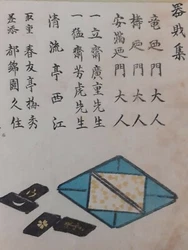 器財集
竜廼門大人
梅廼門大人
安満廼門大人
一立齋廣重先生
一猛齋芳虎先生
清流亭西江
取重 春友亭梅秀
墨添 都錦園久住